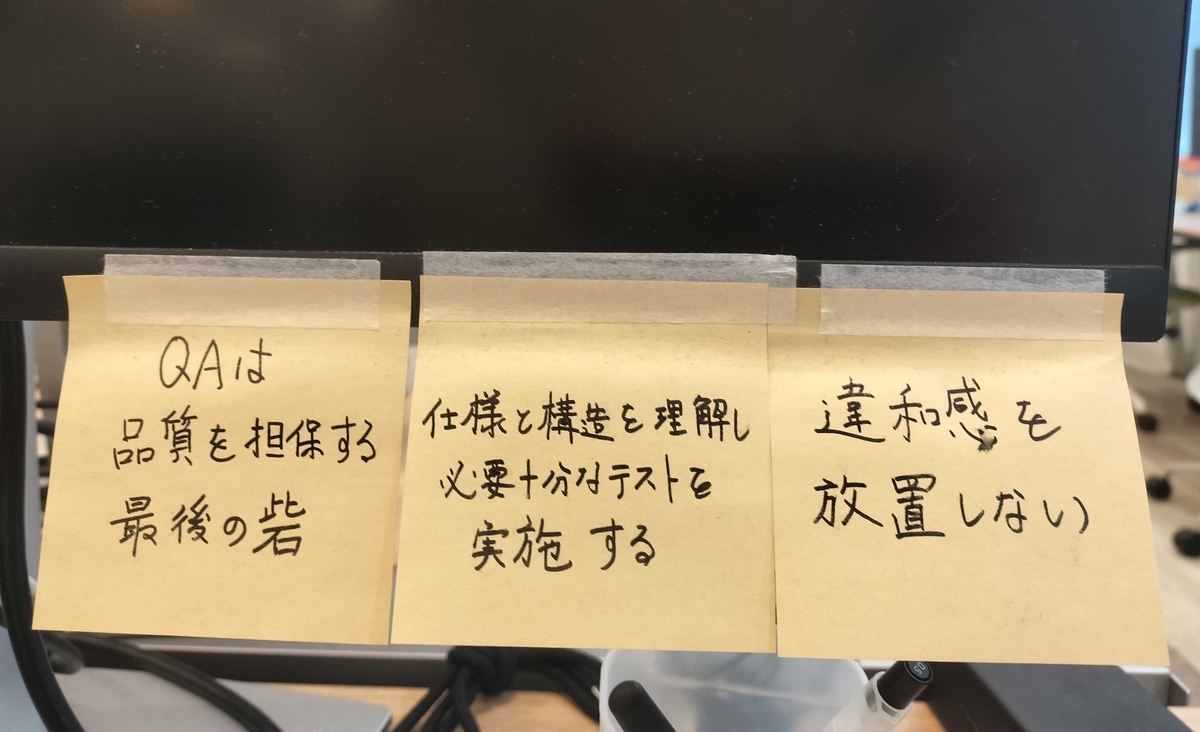 QAは
品質を担保する
最後の砦
仕様と構造を理解し
必要十分なテストを
実施する
違和感を
放置しない